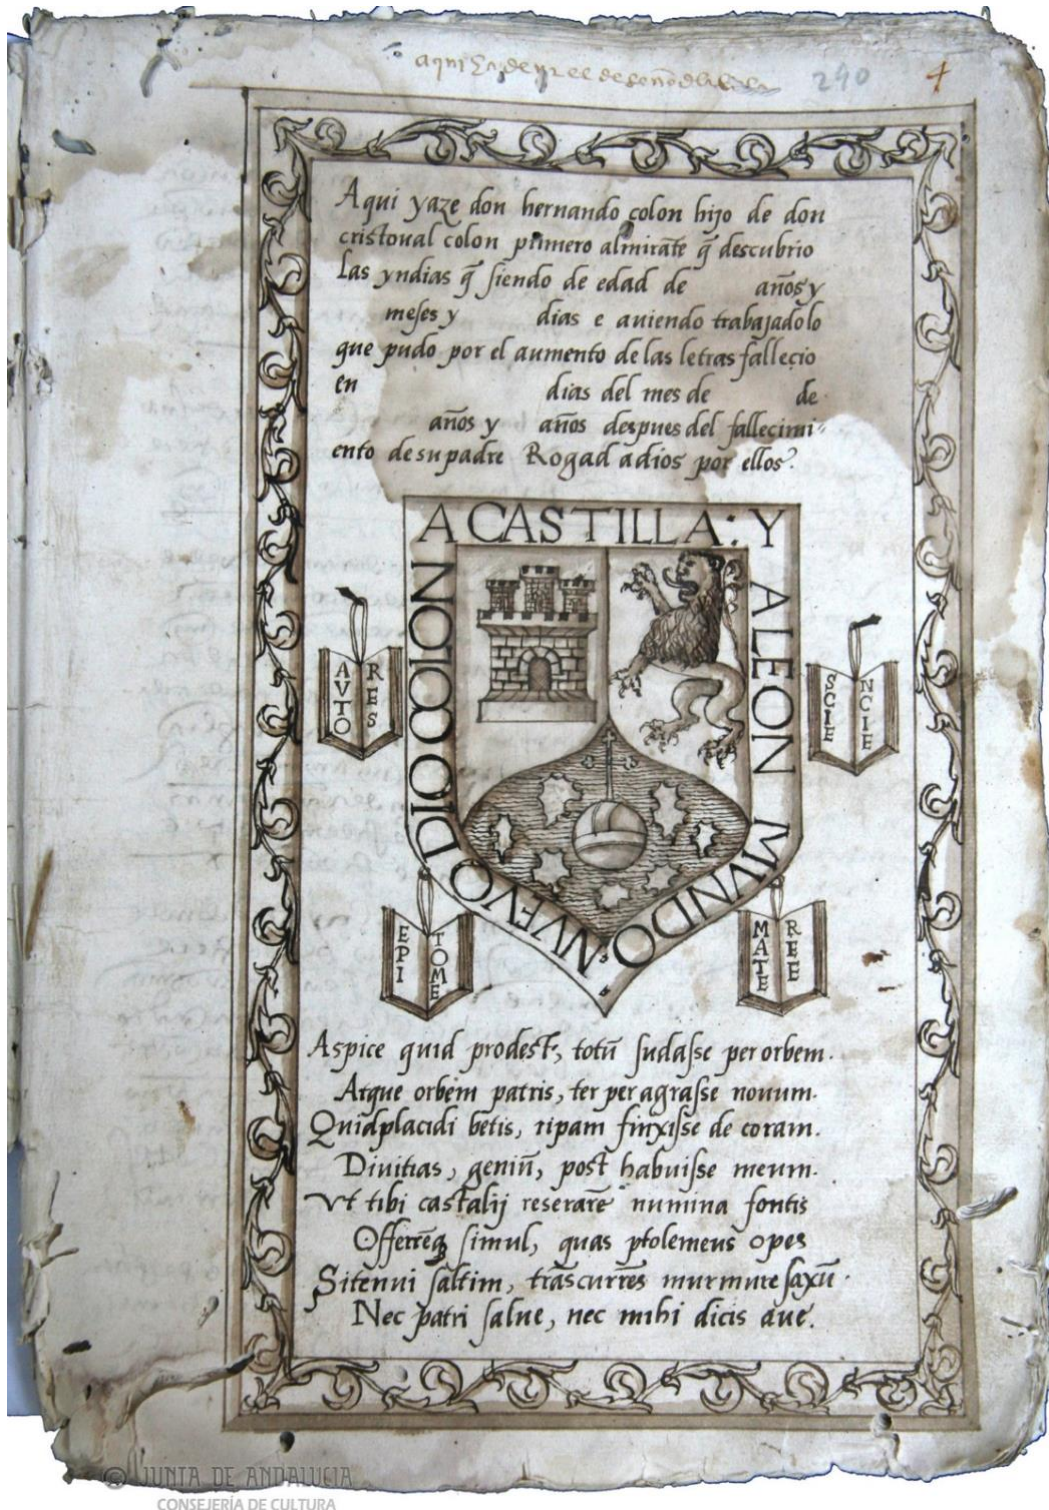 290 4
Aqui yaze don hernando colon hijo de don
cristoual colon primero almirāte q̄ descubrio
Las yndias q̄ siendo de edad de años y
meses y dias e auiendo trabajado lo
que pudo por el aumento de las letras fallecio
en dias del mes de de
años y años despues del fallecimi=
ento de su padre Rogad a dios por ellos.
A CASTILLA: Y
A LEON
MVNDO
NVEVO
DIO
COLON
AVTO RES
SCIE NCIE
EPI TOME
MATE REE
Aspice quid prodest, totū sudasse per orbem.
Atque orbem patris, ter peragrasse nouum.
Quid placidi betis, ripam finxisse decoram.
Diuitias, geniū, post habuisse meum.
Vt tibi castalij reserarē numina fontis
Offerrēq̄ simul, quas ptolemeus opes
Si tenui saltim, trāscurrēs murmure saxū.
Nec patri salue, nec mihi dicis aue.
© JUNTA DE ANDALUCIA
CONSEJERÍA DE CULTURA